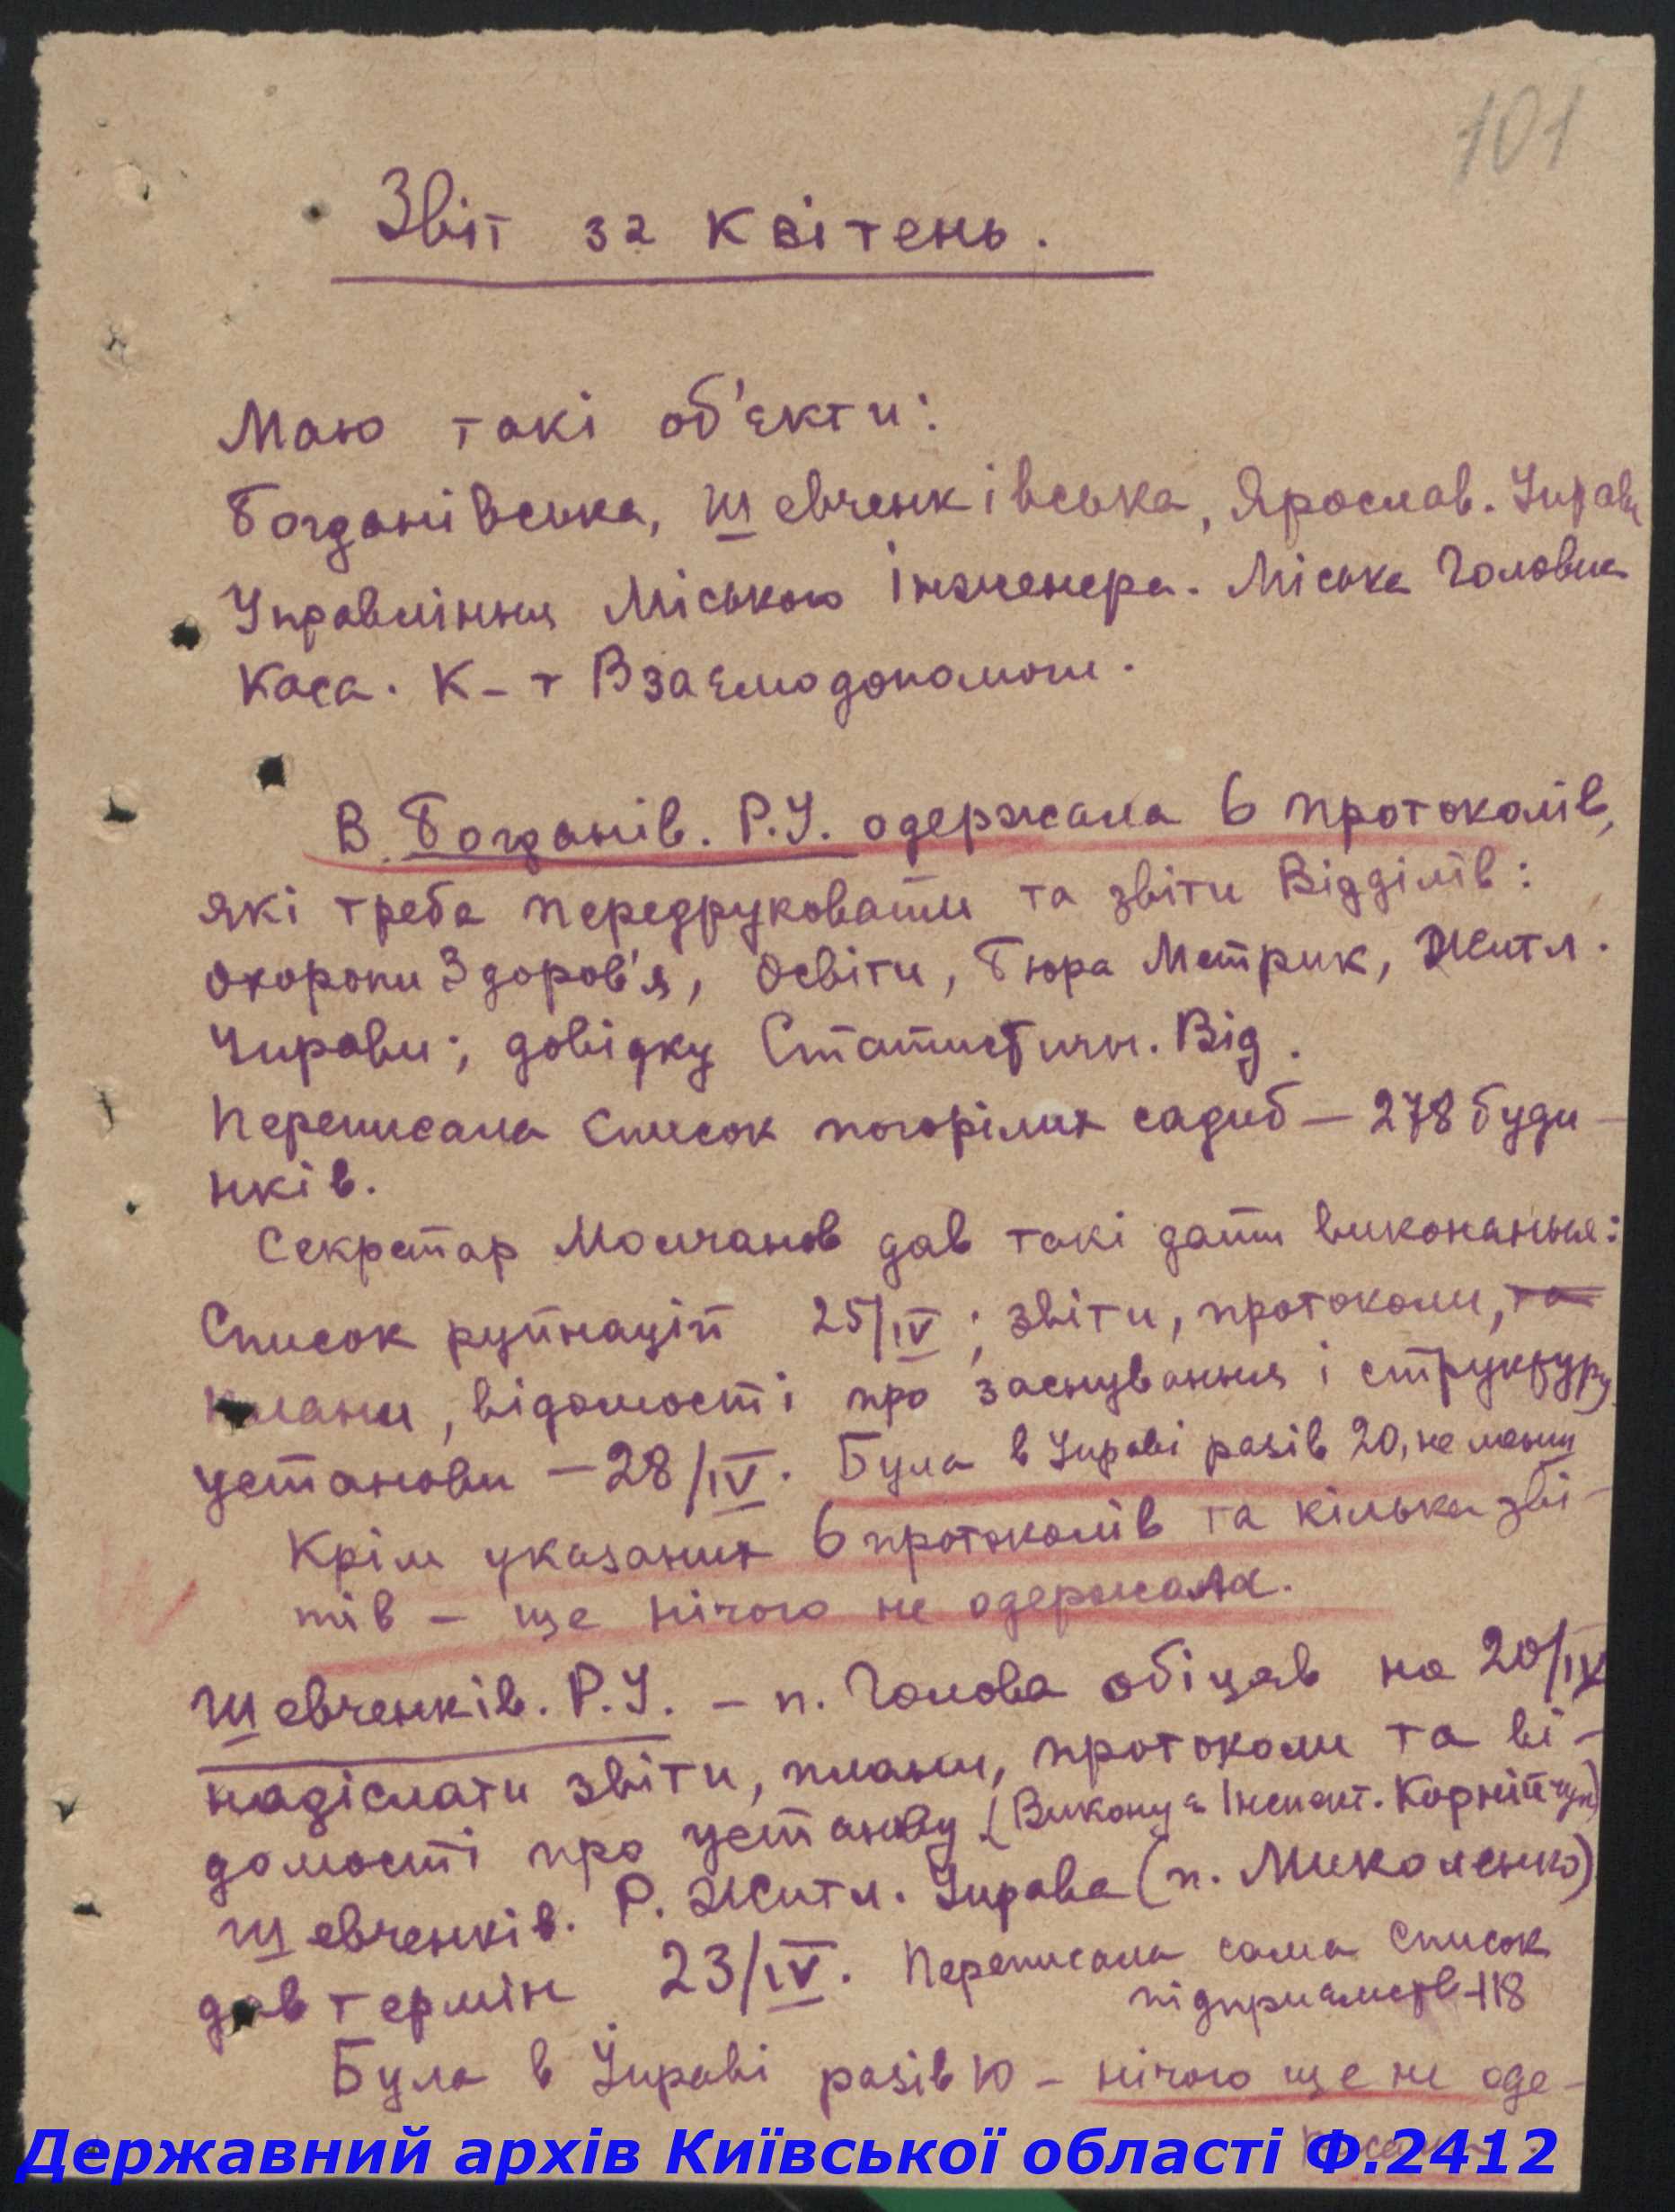 101
Звіт за Квітень.
Маю такі об'єкти:
Богданівська, Шевченківська, Ярослав. Управи
Управління Міського Інженера. Міська Головна
Каса. К-т Взаємодопомоги.
В Богданів. Р.У. одержала 6 протоколів,
які треба передруковати та звіти Відділів:
Охорони Здоров'я, Освіти, Бюра Метрик, Житл.
Управи; довідку Статистичн. Від.
Переписала Список погорілих садиб — 278 буди-
нків.
Секретар Молчанов дав такі дати виконання:
Список руйнацій 25/IV; звіти, протоколи, та
плани, відомості про заснування і структуру
установи — 28/IV. Була в Управі разів 20, не менш
Крім указаних 6 протоколів та кілька зві-
тів — ще нічого не одержала.
Шевченків. Р.У. — п. Голова обіцяв на 20/IV
надіслати звіти, плани, протоколи та ві-
домості про установу (Виконує Інспект. Корнійчук)
Шевченків. Р. Житл. Управа (п. Миколенко)
дав термін 23/IV. Переписала сама Список
підприємств-118
Була в Управі разів 10 — нічого ще не оде-
ржала.
Державний архів Київської області Ф.2412